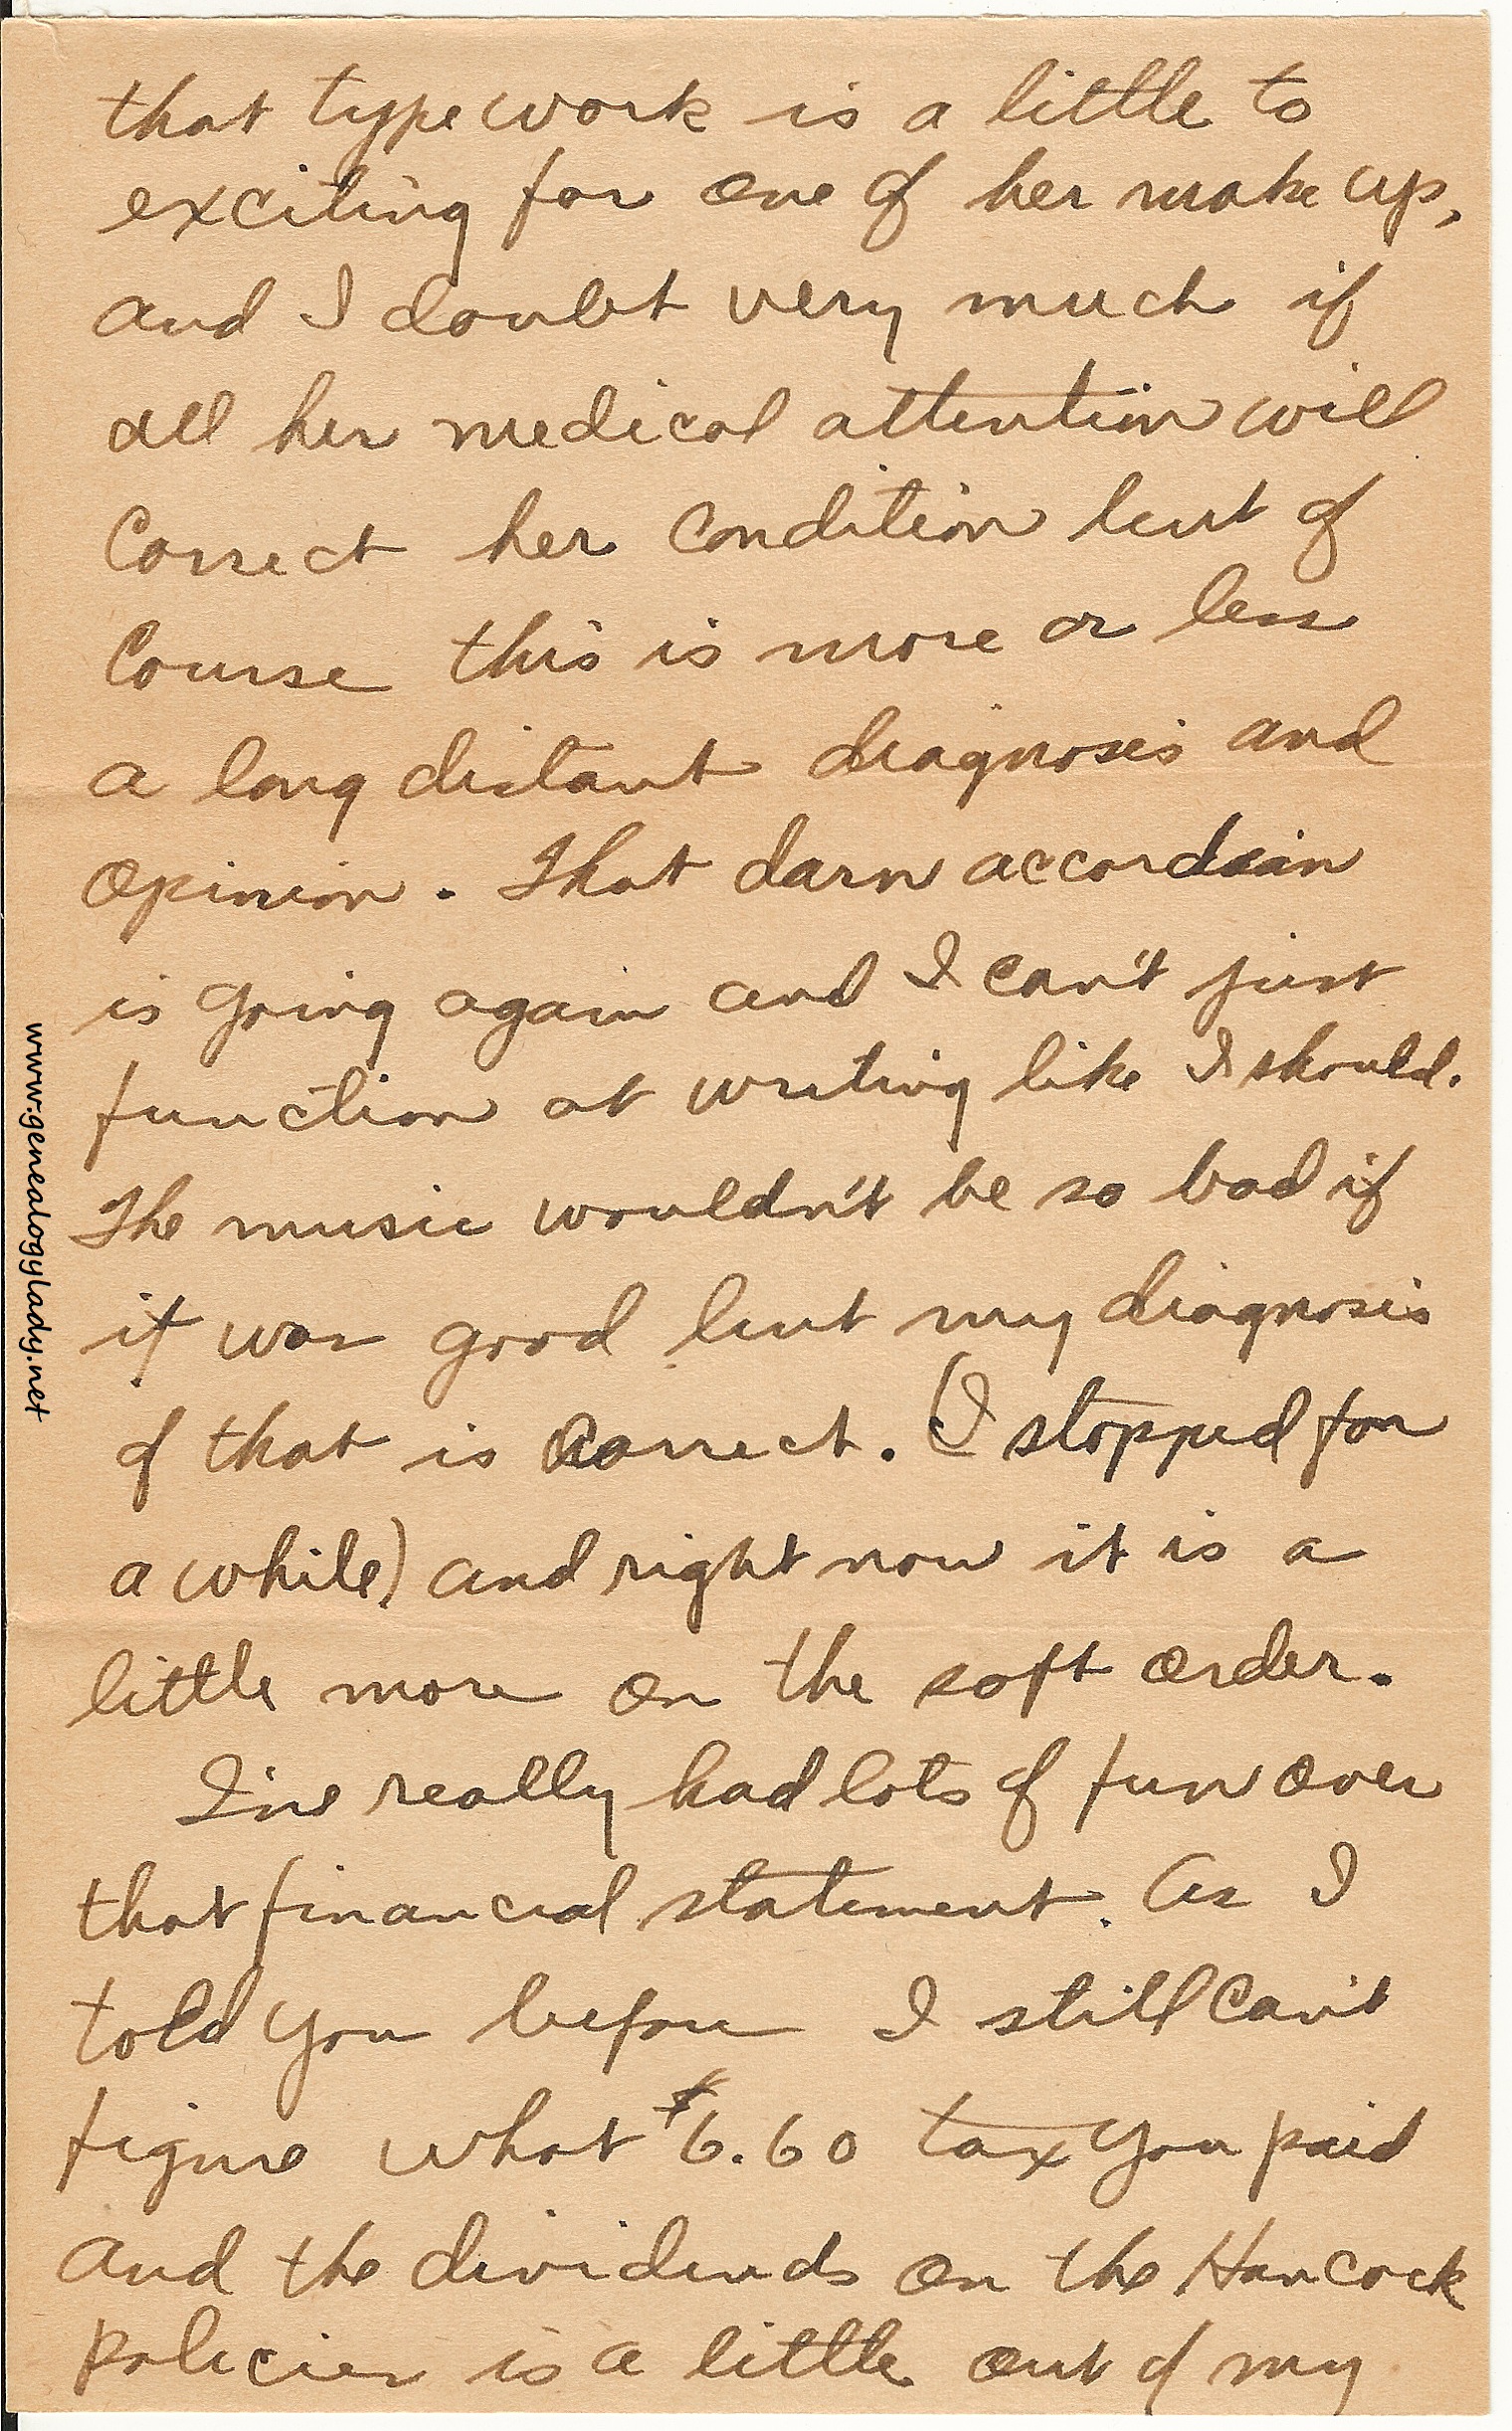 that type work is a little to
exciting for one of her make up,
and I doubt very much if
all her medical attention will
correct her condition but of
course this is more or less
a long distant diagnosis and
opinion. That darn accordian
is going again and I can't just
function at writing like I should.
The music wouldn't be so bad if
it was good but my diagnosis
of that is correct. (I stopped for
a while) and right now it is a
little more on the soft order.
I've really had lots of fun over
that financial statement. As I
told you before I still can't
figure what $6.60 tax you paid
and the dividends on the Hancock
policies is a little out of my
www.genealogylady.net